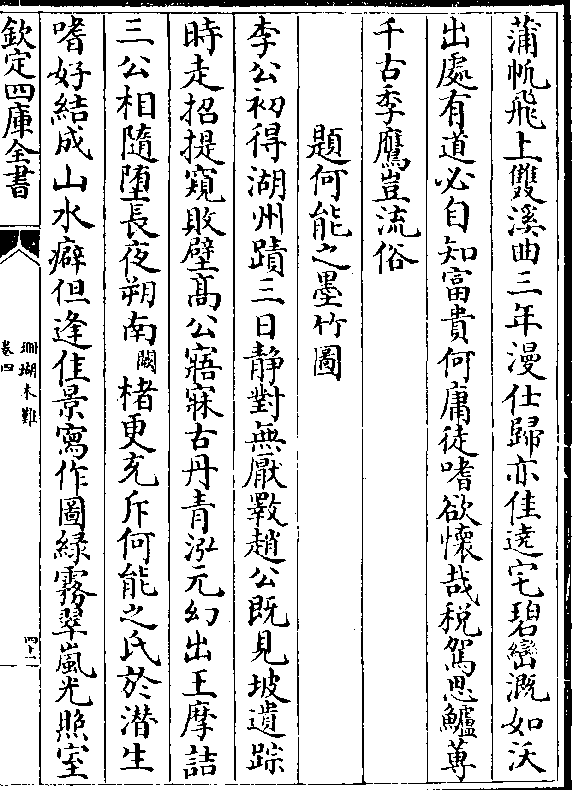 蒲帆飛上雙溪曲三年漫仕歸亦佳遶宅碧巒溉如沃
出處有道必自知富貴何庸徒嗜欲懷哉稅駕思鱸蓴
千古季鷹豈流俗
題何能之墨竹圖
李公初得湖州蹟三日静對無厭斁趙公既見坡遺踪
時走招提窺敗壁髙公寤寐古丹青泓元幻出王摩詰
三公相隨墮長夜朔南闕楮更充斥何能之氏於潜生
嗜好結成山水癖但逢佳景寫作圖緑霧翠嵐光照室
欽定四庫全書
珊瑚木難
卷四